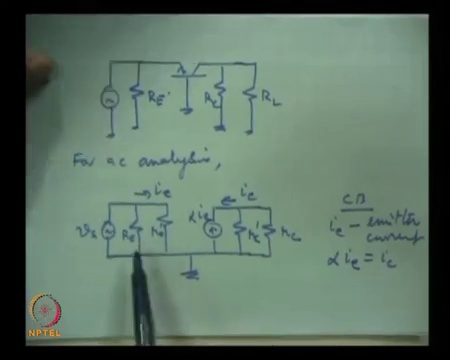 RE
Rc
RL
For ac analysis,
ie
ic
vs
RE
re'
αie
rc'
rc
CB
ie – emitter
current
α ie = ic
NPTEL